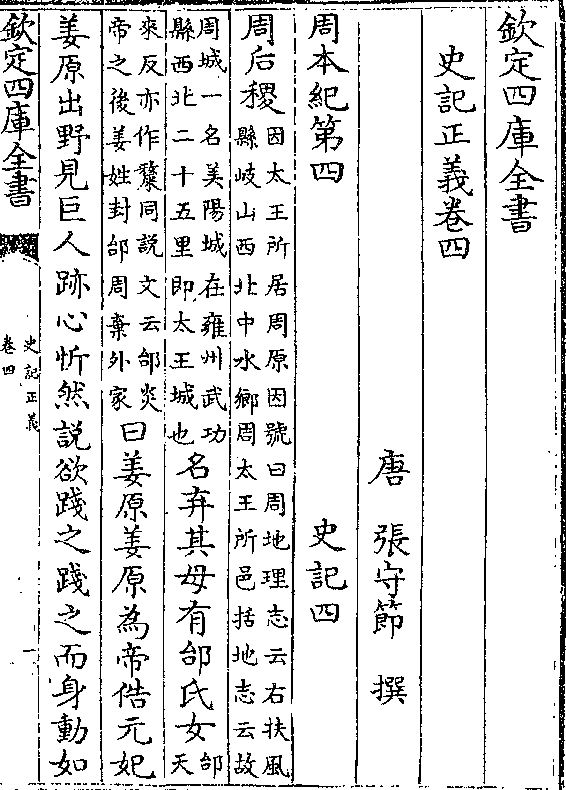 欽定四庫全書
史記正義卷四
唐 張守節 撰
周本紀第四 史記四
周后稷因太王所居周原因號曰周地理志云右扶風
縣岐山西北中水鄉周太王所邑括地志云故
周城一名美陽城在雍州武功
縣西北二十五里即太王城也名弃其母有邰氏女邰
天
來反亦作斄同說文云邰炎
帝之後姜姓封邰周棄外家曰姜原姜原為帝俈元妃
姜原出野見巨人跡心忻然說欲踐之踐之而身動如
欽定四庫全書
史記正義
卷四
一